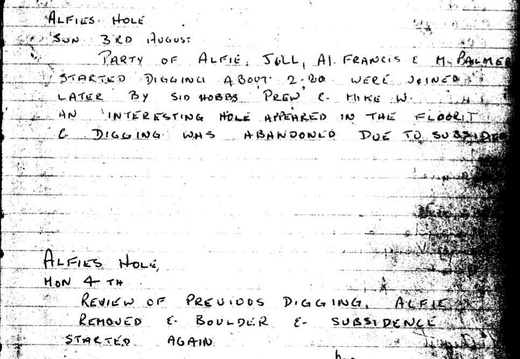 ALFIES HOLE
SUN 3RD AUGUS:
PARTY OF ALFIE, JILL, Al. FRANCIS & M. PALMER
STARTED DIGGING ABOUT 2-20 WERE JOINED
LATER BY SID HOBBS 'PREW' & MIKE W.
AN 'INTERESTING HOLE APPEARED IN THE FLOOR
& DIGGING WAS ABANDONED DUE TO
ALFIES HOLE,
MON 4TH
REVIEW OF PREVIOUS DIGGING. ALFIE
REMOVED & BOULDER & SUBSIDENCE
STARTED AGAIN